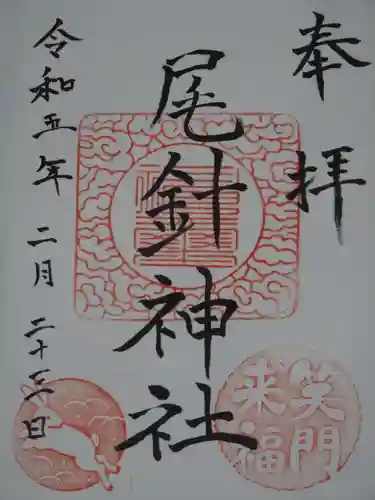 奉拝
尾針神社
令和五年二月二十三日
笑門
来福